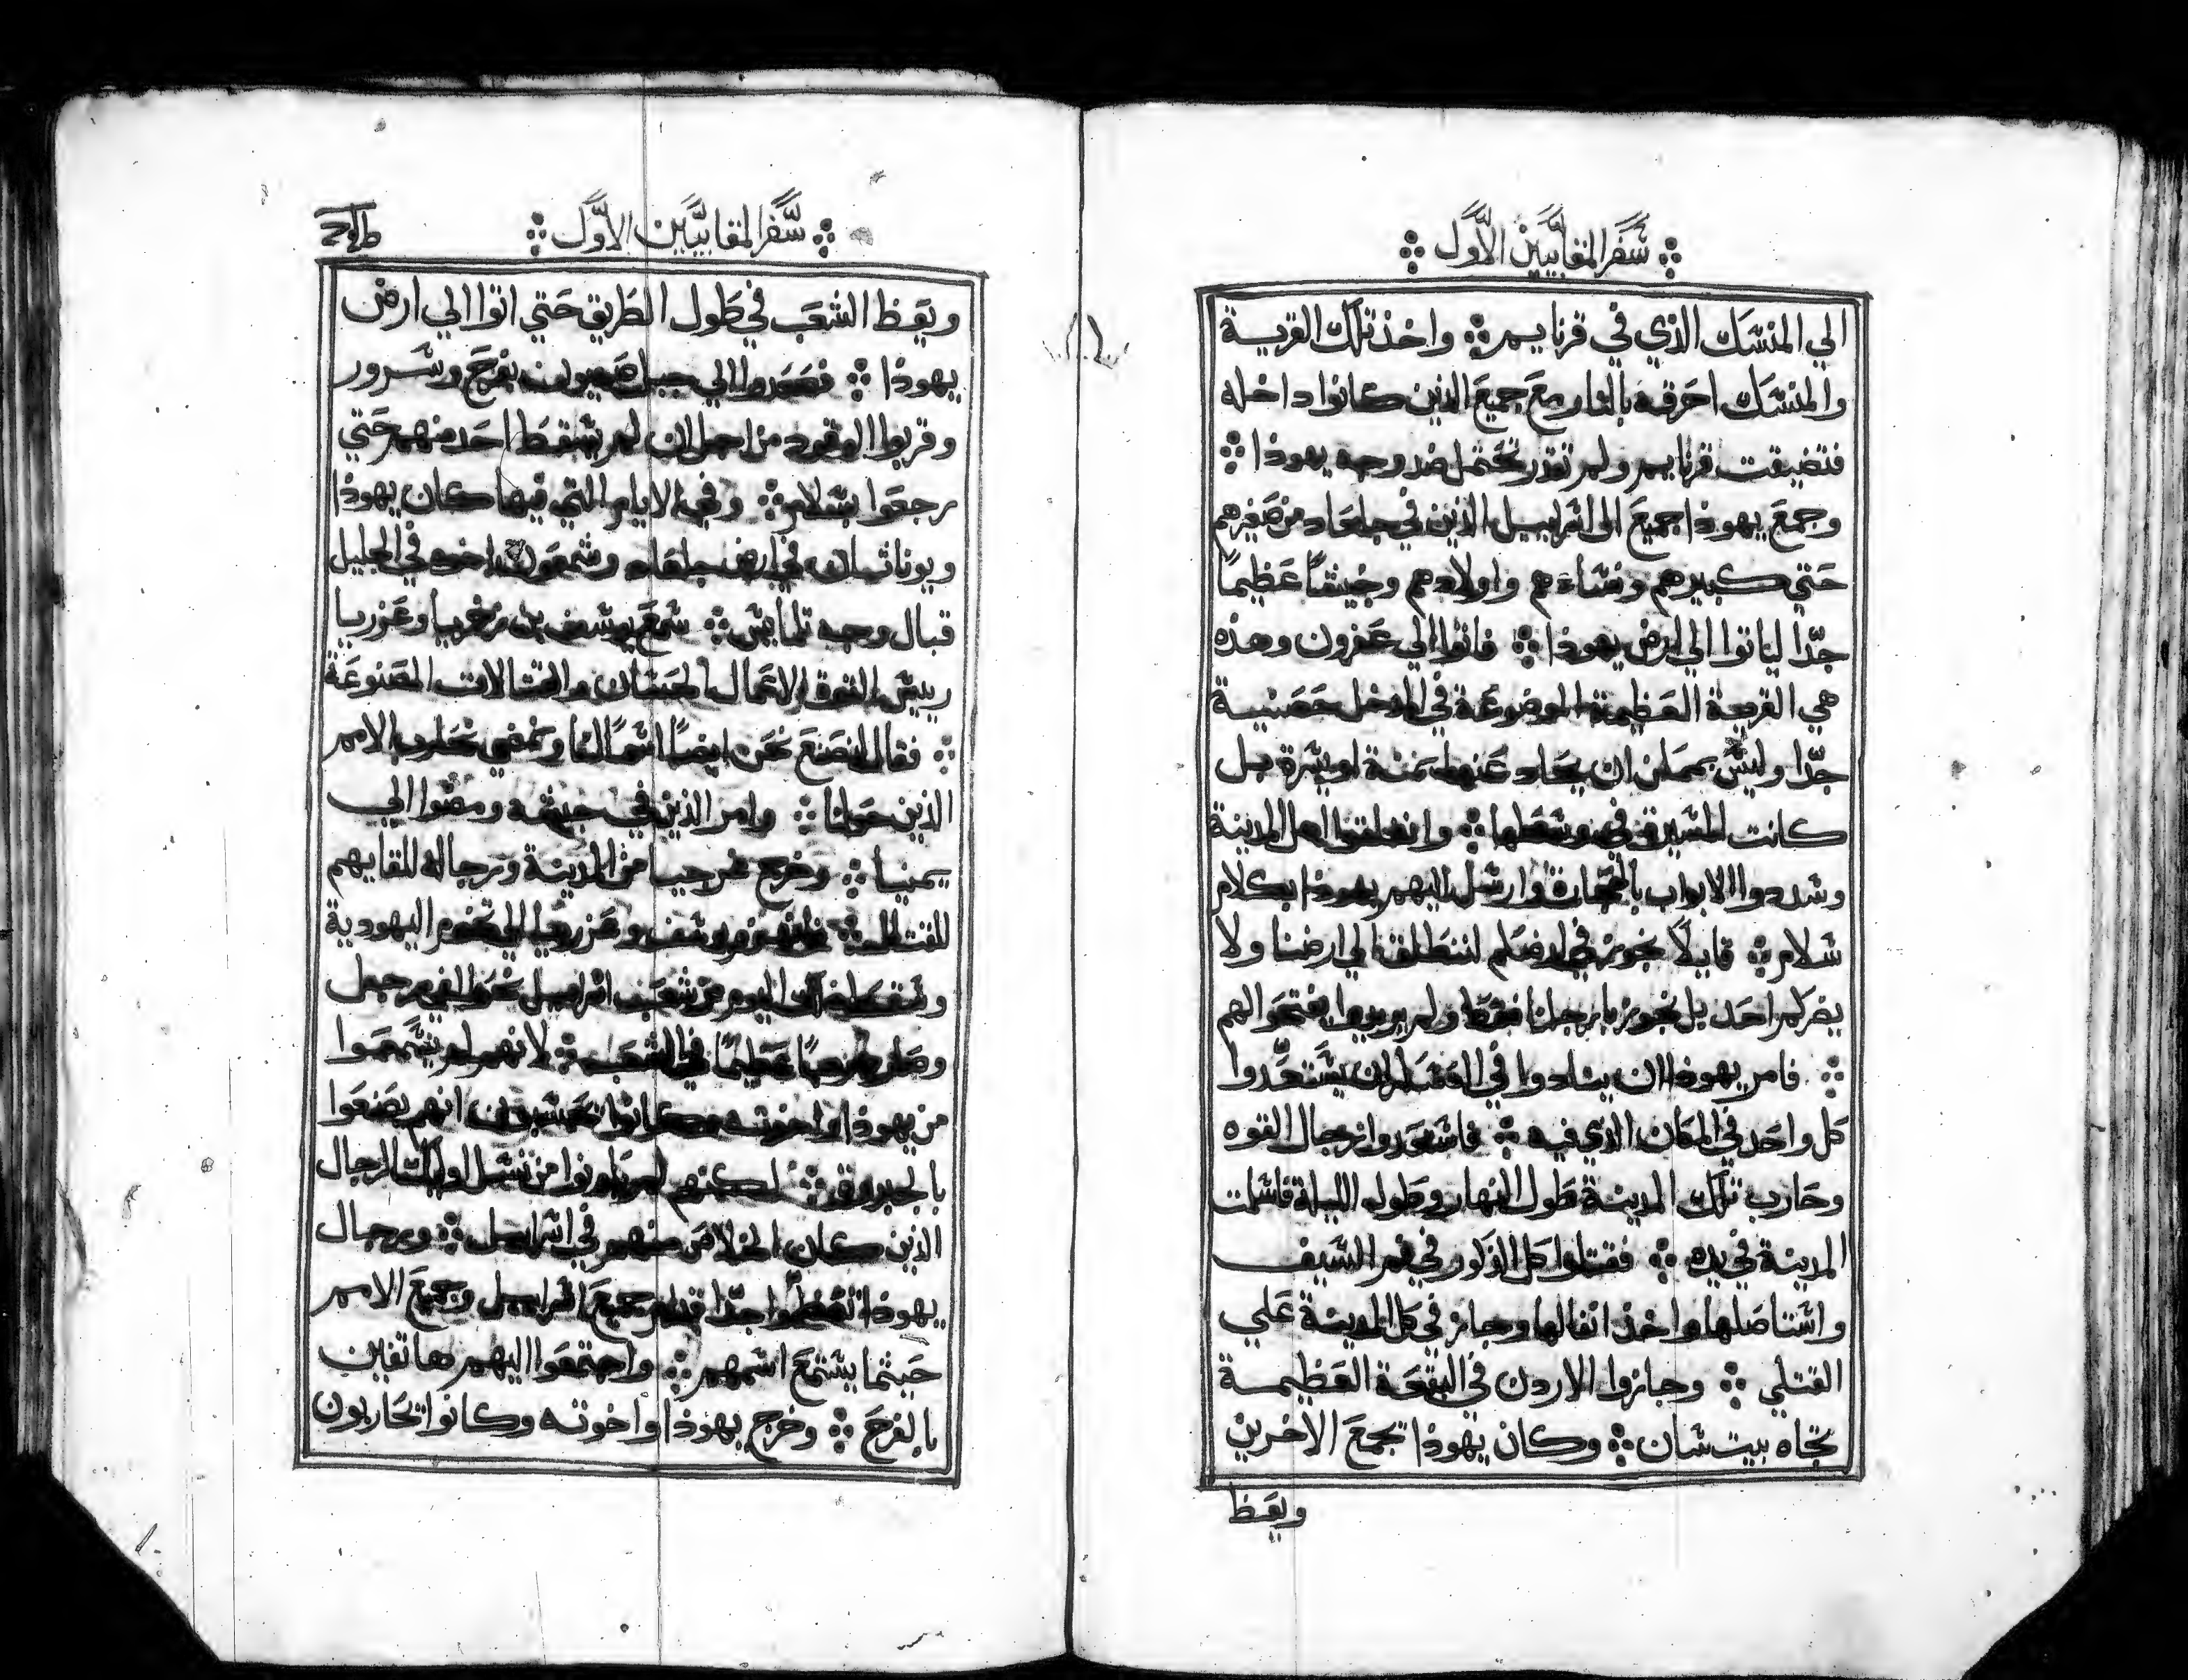 سفر المقابيين الاول
الي المنسك الذي في قرنايم ۞ واخذ تلك القرية
والمنسك احرقه بالنار مع جميع الذين كانوا داخله
فتضيقت قرنايم ولم تقدر تحتمل ضد وجه يهوذا ۞
وجمع يهوذا جميع ال اسراييل الذين في جلعاد من صغيرهم
حتي كبيرهم ونساءهم واولادهم وجيشا عظيما
جدا لياتوا الي ارض يهوذا ۞ فاتوا الي عفرون وهذه
هي القرية العظيمة الموضوعة في المدخل حصينة
جدا وليس بممكن ان يحاد عنها يمنة او يسرة بل
كانت المسيرة في وسطها ۞ وانغلقوا اهل المدينة
وسددوا الابواب بالحجارة وارسل اليهم يهوذا بكلام
سلام ۞ قايلا نجوز في ارضكم لننطلق الي ارضنا ولا
يضركم احد بل نجوز بارجلنا فقط ولم يريدوا يفتحوا لهم
۞ فامر يهوذا ان ينادوا في العسكر ان يستعدوا
كل واحد في المكان الذي فيه ۞ فاستعدوا رجال القوه
وحارب تلك المدينة طول النهار وطول الليلة فاسلمت
المدينة في يده ۞ فقتلوا كل الذكور في فم السيف
واستاصلها واخذ انفالها وجاز في كل المدينة علي
القتلي ۞ وجازوا الاردن في البقعة العظيمة
تجاه بيت شان ۞ وكان يهوذا يجمع الاخرين
ويعظ
سفر المقابيين الاول
ويعظ الشعب في طول الطريق حتي اتوا الي ارض
يهوذا ۞ فصعدوا الي جبل صهيون بفرح وسرور
وقربوا الوقود من اجل ان لم يسقط احد منهم حتي
رجعوا بسلام ۞ وفي الايام التي فيها كان يهوذا
ويوناثان في ارض جلعاد وسمعون اخوه في الجليل
قبال وجه تلمايس ۞ سمع يوسف بن زخريا وعزريا
رييس القوة الاعمال الحسان والقتالات المصنوعة
۞ فقال لنصنع نحن ايضا اسما لنا ونمضي نحارب الامم
الذين حولنا ۞ وامر الذين في جيشه ومضوا الي
يمنيا ۞ وخرج غرجيا من المدينة ورجاله للقايهم
للقتال ۞ فانهزم يوسف وعزريا الي تخوم اليهودية
وسقط ذلك اليوم من شعب اسراييل نحو الفي رجل
وصار هربا عظيما في الشعب ۞ لانهم لم يسمعوا
من يهوذا واخوته وكانوا يحسبون انهم يصنعوا
بالجبروة ۞ لكنهم لم يكونوا من نسل اوليك الرجال
الذين كان الخلاص منهم في اسراييل ۞ ورجال
يهوذا تعظموا جدا قدام جميع اسراييل وجميع الامم
حيثما يستمع اسمهم ۞ واجتمعوا اليهم هاتفين
بالفرح ۞ وخرج يهوذا واخوته وكانوا يحاربون